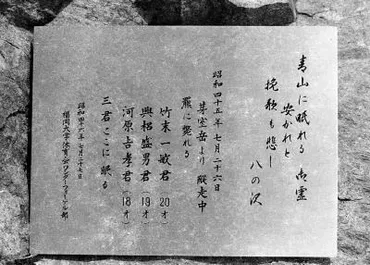 青山に眠れる御霊
安かれと
挽歌も悲し
八の沢
昭和四十五年七月二十六日
芽室岳より縦走中
羆に斃れる
竹末一敏君 20才
興梠盛男君 19才
河原吉孝君 18才
三君ここに眠る
昭和四十六年七月二十七日
福岡大学体育会ワンダーフォーゲル部